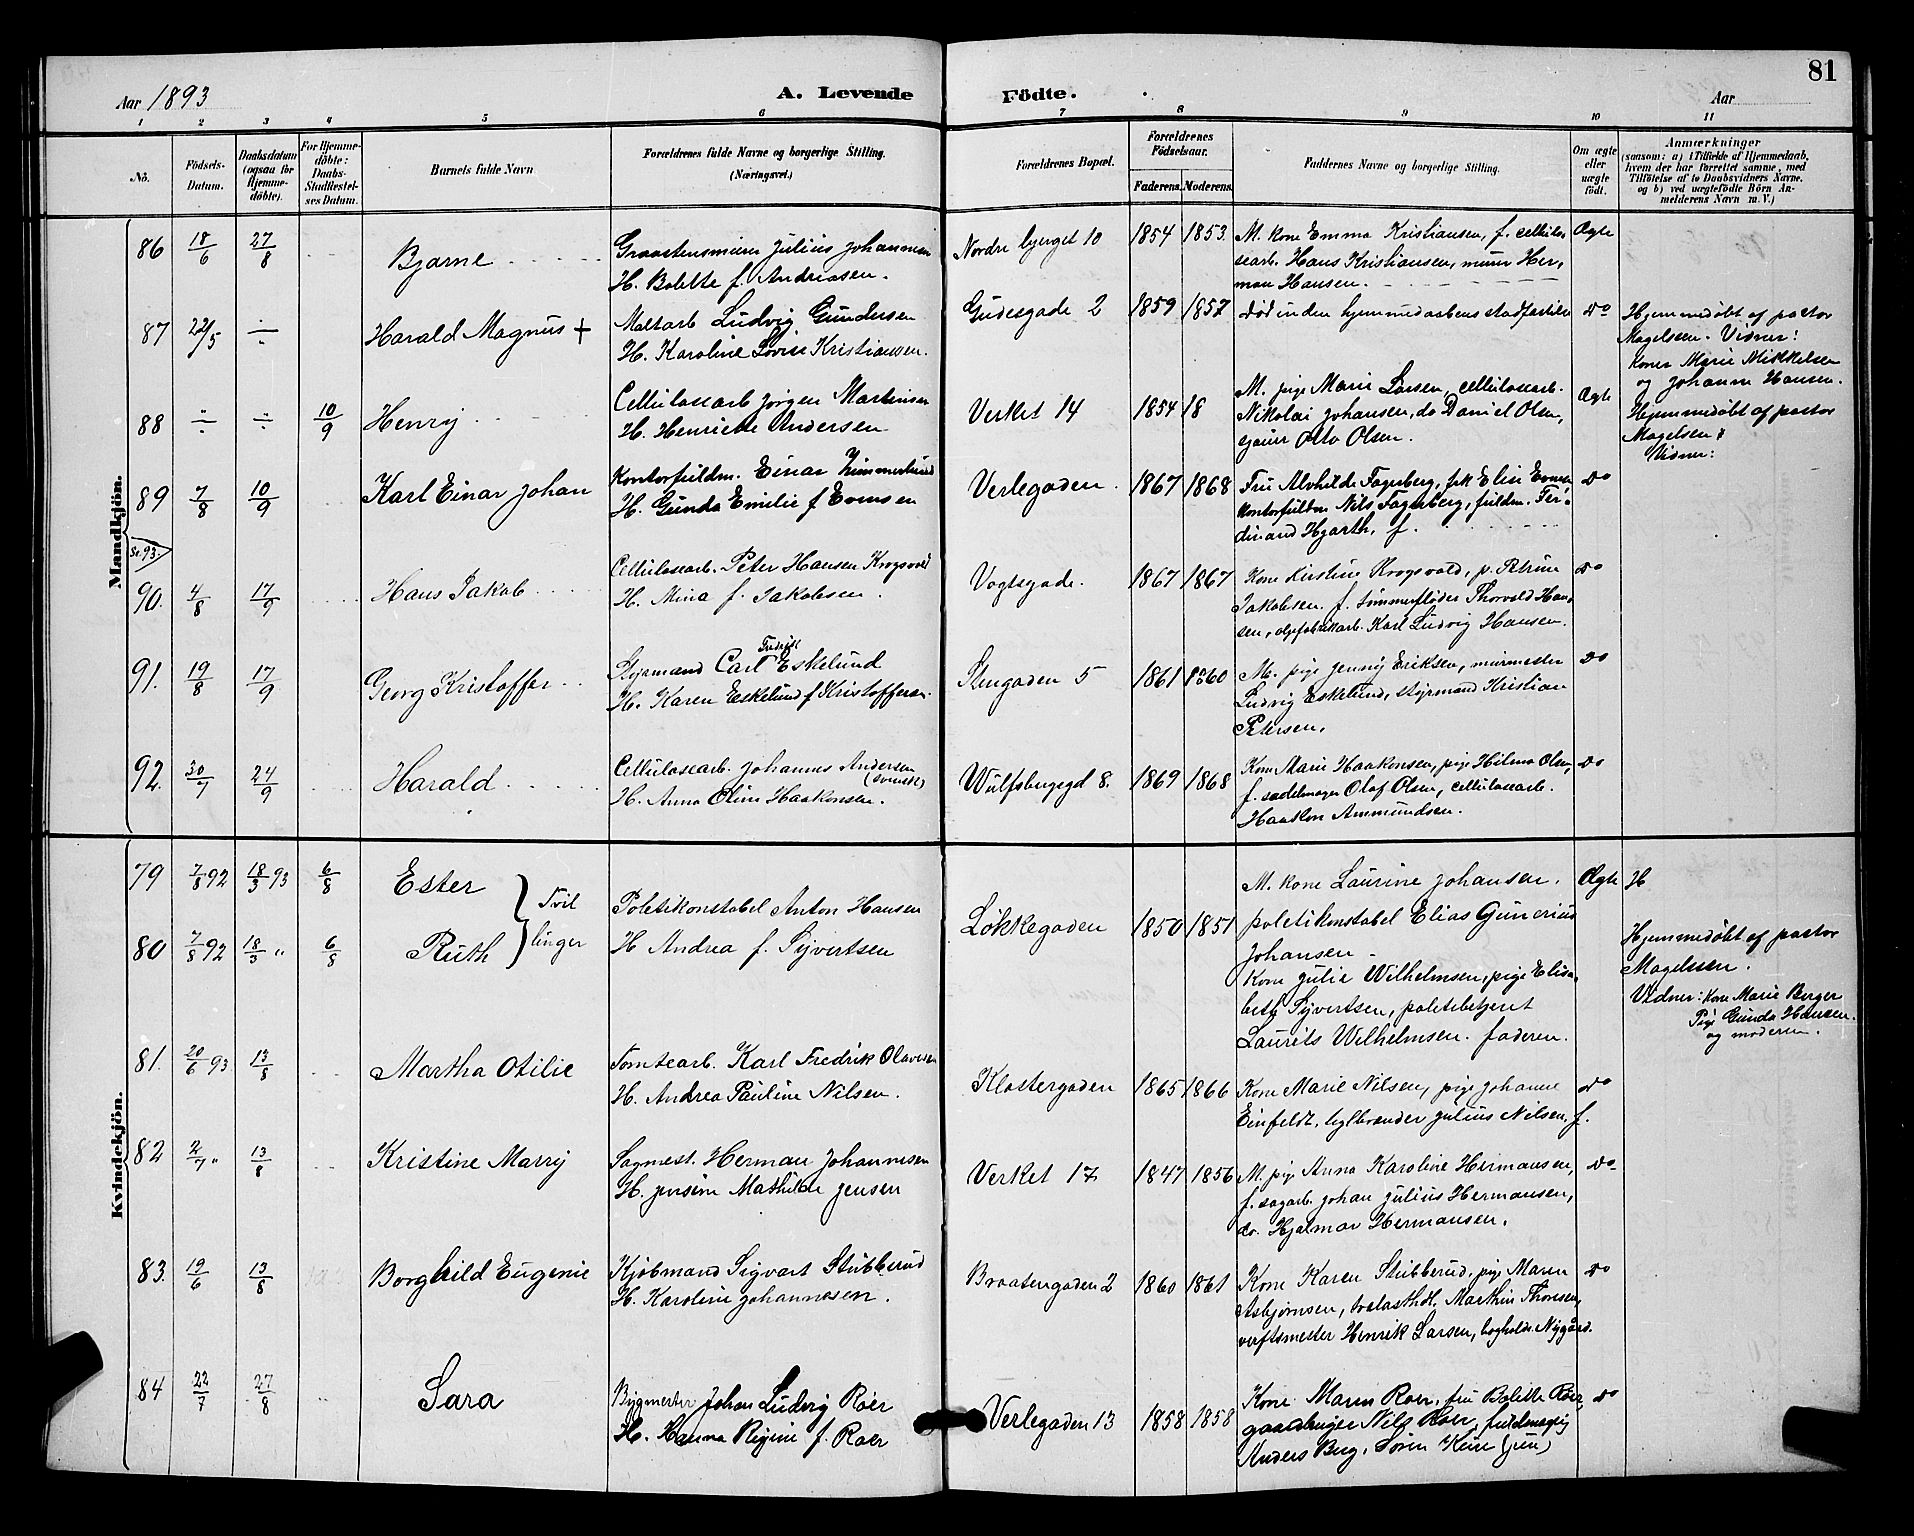 81
Aar 1893
A. Levende
Födte.
Aar
1 2 3 4 5 6 7 8 9 10 11
No.
Födsels-
Datum.
Daabsdatum
(ogsaa for
Hjemme-
døbte).
For Hjemme-
døbte:
Daabs-
Stadfæstel-
ses Datum.
Barnets fulde Navn
Forældrenes fulde Navne og borgerlige Stilling.
(Næringsvei.)
Forældrenes Bopæl.
Forældrenes
Födselsaar.
Faderens. Moderens.
Faddernes Navne og borgerlige Stilling.
Om ægte
eller
uægte
födt.
Anmærkninger
(saasom: a) i Tilfælde af Hjemmedaab,
hvem der har forrettet samme, med
Tilföielse af to Daabsvidners Navne,
og b) ved uægtefödte Börn An-
melderens Navn m. V.)
Mandkjön.
86 18/6 27/8 Bjarne
Graastensmurer Julius Johannesen
H. Bolette f. Andreasen.
Nordre bjerget 10 1854 1853
M. kone Emma Kristiansen, f. cellulo
searb. Hans Kristiansen, murer Her,
man Hansen.
Ægte
87 22/5 ÷ Harald Magnus +
Maltarb Ludvig Gundersen
H. Karoline Lovise Kristiansen.
Gudesgade 2 1859 1857
død inden hjemmedaabens stadfæstelse
Do
Hjemmedøbt af pastor
Magelssen. Vidner:
Koner Marie Mikkelsen
og Johanne Hansen.
88 ÷ ÷ 10/9 Henry
Cellulosearb Jørgen Martinsen
H. Henriette Andersen
Verket 14 1854 18
M. pige Marie Larsen, cellulosearb.
Nikolai Johansen, do Daniel Olsen,
Otto Olsen.
Ægte
Hjemmedøbt af pastor
Magelsen.
Vidner:
89 7/8 10/9 Karl Einar Johan
Kontorfuldm. Einar
H. Gunda Emilie f Evensen
Verlegaden. 1867 1868
Fru Alvhilde Fagerberg, frk Elise Evensen
kontorfuldm Nils Fagerberg, fuldm. Fer-
dinand Hjorth, f.
Do
90. 4/8 17/9 Hans Jakob
Cellulosearb. Peter Hansen Krogsvold
H. Mina f. Jakobsen.
Vogtsgade. 1867 1867
Kone Kirstine Krogsvold, p. Petrine
Jakobsen. f. tømmerfløder Thorvald Han,
sen, Karl Ludvig Hansen.
Do
91. 19/8 17/9 Georg Kristoffer
Fredrik
Styrmand Carl Eskelund
H. Karen Eskelund f Kristoffersen.
Stengaden 5 1861 1860
M. pige Jenny Eriksen, murmester
Ludvig Eskelund, styrmand Kristian
Petersen.
Do
92. 30/7 24/9 Harald
Cellulosearb. Johannes Andersen
(svensk)
H. Anna Oline Haakonsen.
Wulfsbergsgd 8. 1869 1868
Kone Marie Haakonsen, pige Hilma Olsen,
f. sadelmager Olaf Olsen, cellulosearb.
Haakon Ammundsen.
Do
Kvindekjön.
79 7/8 92 18/3 93 6/8 Ester
Tvil
80 7/8 92 18/3 " 6/8 Ruth
linger
Politikonstabel Anton Hansen
H Andrea f. Syvertsen
Løkkegaden 1850 1851
M. kone Laurine Johansen.
politikonstabel Elias Gunerius
Johansen
Kone Julie Wilhelmsen, pige Elisa-
beth Syvertsen, politibetjent
Laurits Wilhelmsen. faderen.
Ægte
H
Hjemmedøbt af pastor
Magelssen.
Vidner: Kone Marie Berger
Pige Gunda Hansen.
og moderen.
81. 20/6 93 13/8 Martha Otilie
Tomtearb. Karl Fredrik Olavesen
H. Andrea Pauline Nilsen.
Klostergaden 1865 1866
Kone Marie Nilsen, pige Johanne
Einfeldt, teglbrænder Julius Nilsen. f.
Do
82 2/7 " 13/8 Kristine Marry
Sagmest. Herman Johannesen
H. Jensine Mathilde Jensen
Verket 17 1847 1856
M. pige Anna Karoline Hermansen,
f. sagarb. Johan Julius Hermansen,
do. Hjalmar Hermansen.
Do
83. 19/6 13/8 Borghild Eugenie
Kjøbmand Sigvart Stubberud
H. Karoline Johannesen.
Braatengaden 2 1860 1861
Kone Karen Stubberud, pige Maren
Asbjørnsen, trælasthdl. Marthin Thoresen,
verftsmester Henrik Larsen, bogholder Nygård.
Do
84 22/7 27/8 Sara
Bygmester Johan Ludvig Roer
H. Hanna Regine f. Roer
Verlegaden 13 1858 1858
Kone Maren Roer, fru Bolette Roer
gaardbruger Nils Roer, fuldmægtig
Anders Berg, Søren (jun)
Do